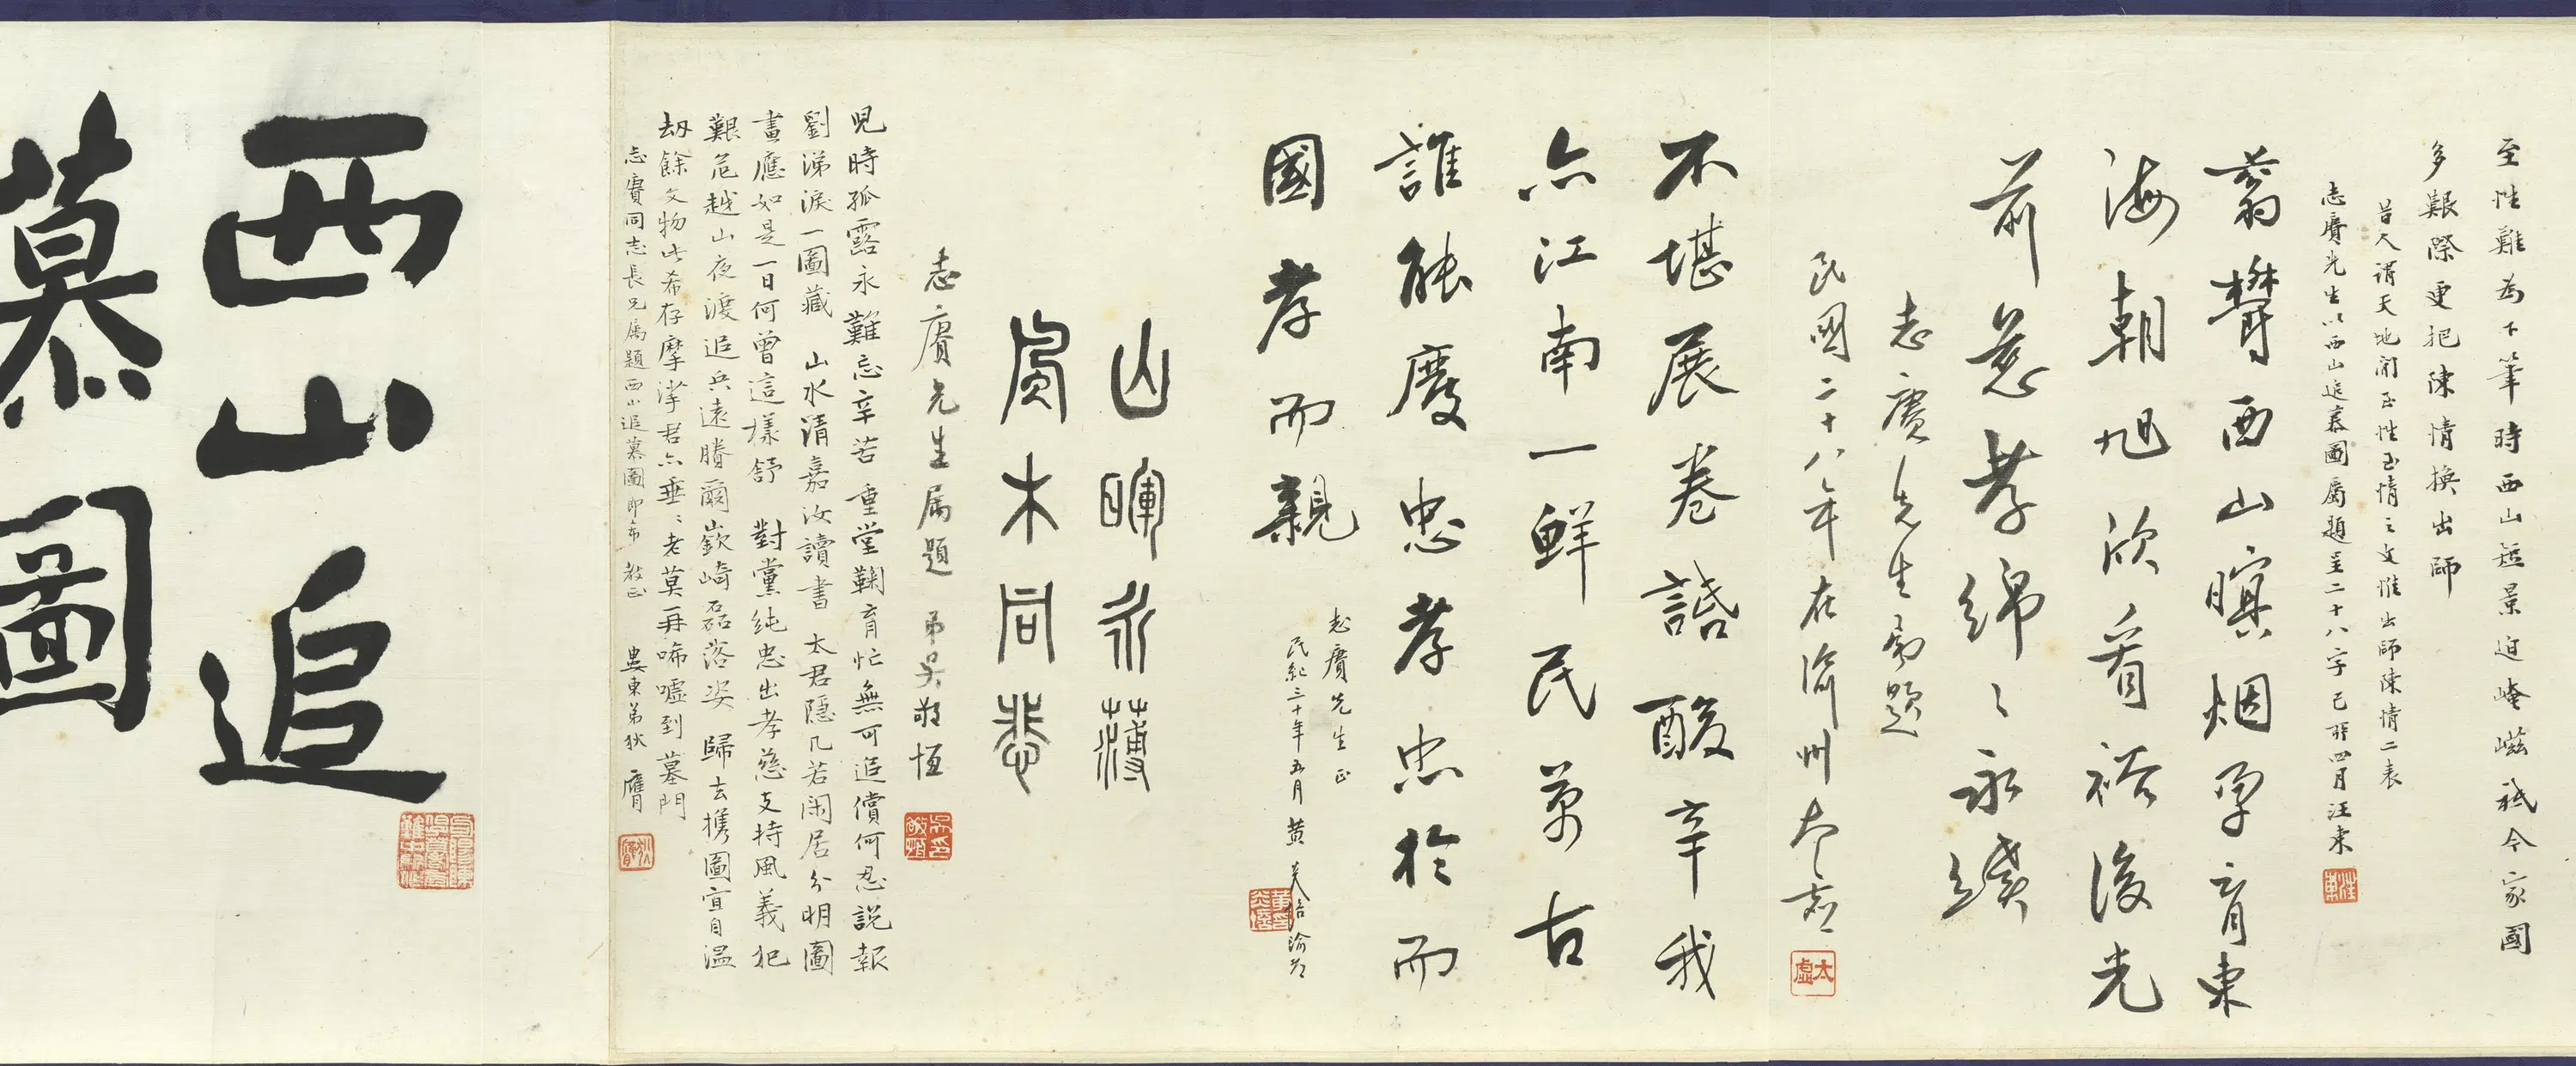 至性難為下筆時西山短景迫崦嵫祇今家國
多艱際更把陳情換出師
昔人謂天地間至性至情之文惟出師陳情二表
志賡先生以西山追慕圖屬題呈二十八字己卯四月汪東
汪東
蓊鬱西山暝烟孕育東
海朝旭欣看裕後光
前慈孝綿綿永續
志賡先生屬題
民國二十八年在渝州太虛
太虛
不堪展卷話酸辛我
亦江南一鮮民萬古
誰能廢忠孝忠於而
國孝而親
志賡先生正
民紀三十年五月黃炎培渝都
山暉川藻
風木同悲
志賡先生属題 弟吳敬恆
兒時孤露永難忘辛苦重堂鞠育忙無可追償何忍說報
劉涕淚一圖藏 山水清嘉汝讀書太君隱几若閑居分明圖
畫應如是一日何曾這樣舒 對黨純忠出孝慈支持風義犯
艱危越山夜渡追兵遠賸爾嶔崎磊落姿 歸去攜圖宜自溫
劫餘文物此希存摩挲君亦垂垂老莫再唏噓到墓門
志賡同志長兄属題西山追慕圖即希 教正 婁東弟狄膺
西山追
慕圖